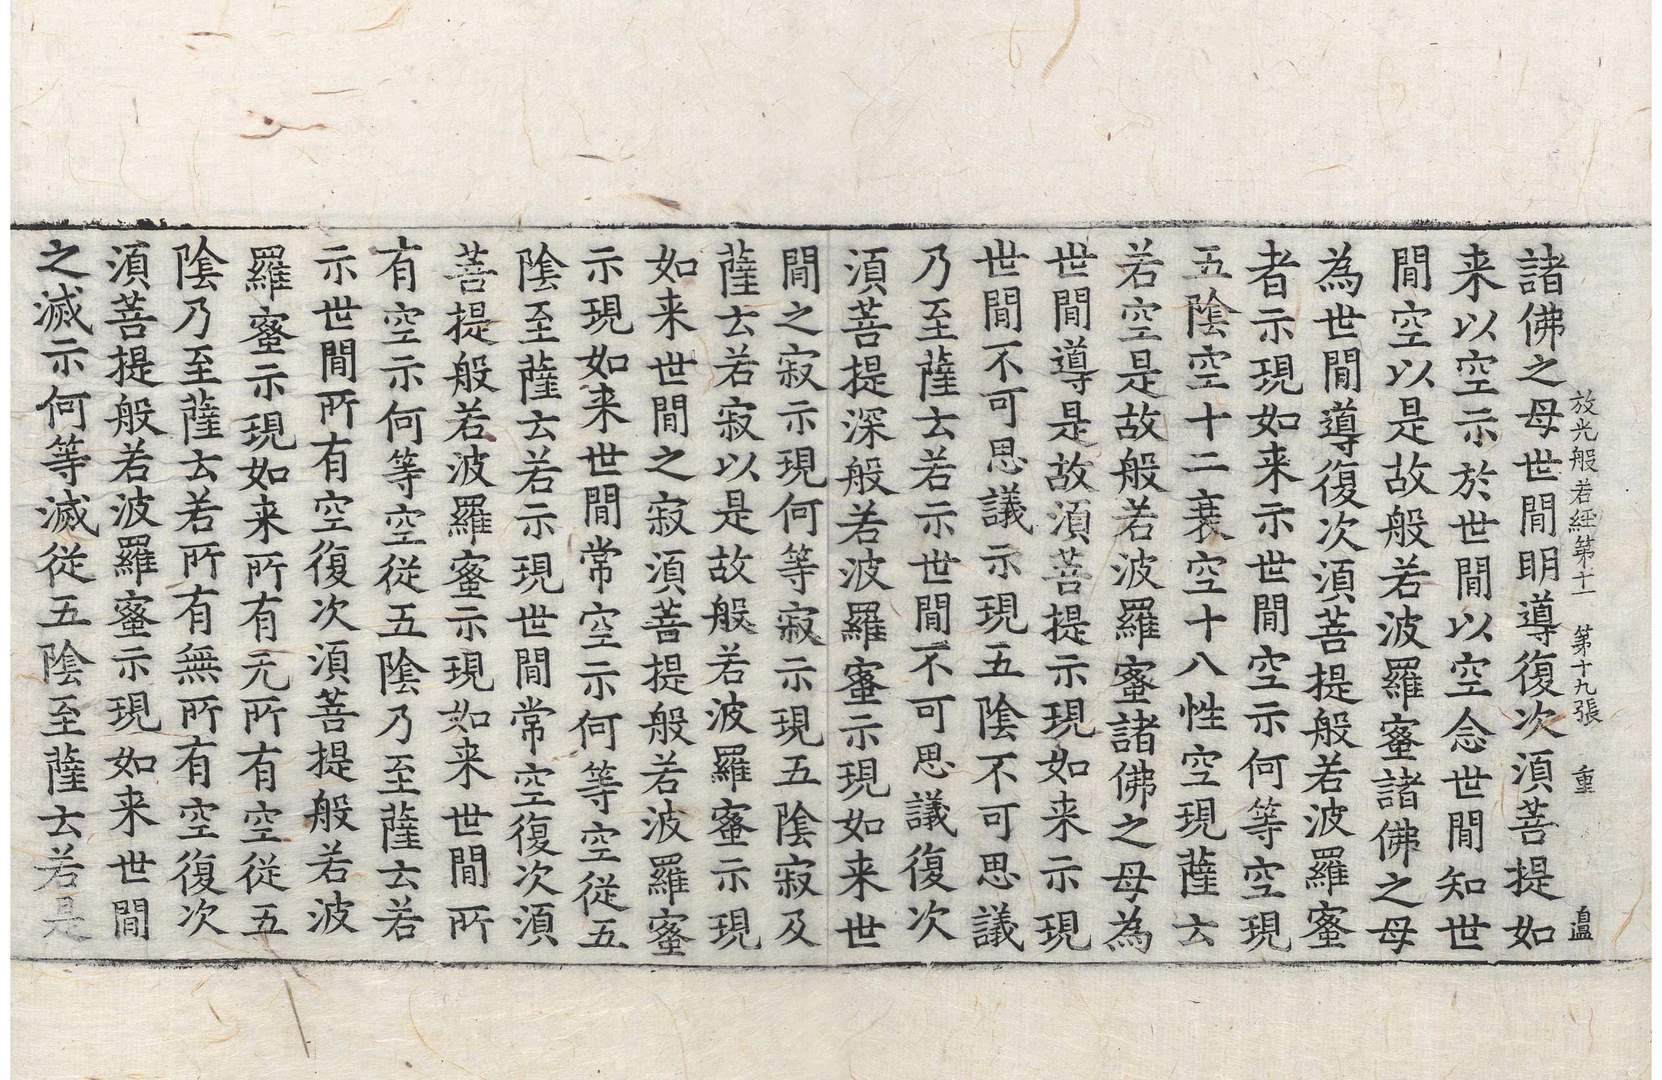 放光般若経第十一 第十九張 重
諸佛之母世間明導復次湏菩提如
来以空示於世間以空念世間知世
間空以是故般若波羅蜜諸佛之母
為世間導復次湏菩提般若波羅蜜
者示現如来示世間空示何等空現
五陰空十二衰空十八性空現薩云
若空是故般若波羅蜜諸佛之母為
世間導是故湏菩提示現如来示現
世間不可思議示現五陰不可思議
乃至薩云若示世間不可思議復次
湏菩提深般若波羅蜜示現如来世
間之寂示現何等寂示現五陰寂及
薩云若寂以是故般若波羅蜜示現
如来世間之寂湏菩提般若波羅蜜
示現如来世間常空示何等空従五
陰至薩云若示現世間常空復次湏
菩提般若波羅蜜示現如来世間所
有空示何等空従五陰乃至薩云若
示世間所有空復次湏菩提般若波
羅蜜示現如来所有无所有空従五
陰乃至薩云若所有無所有空復次
湏菩提般若波羅蜜示現如来世間
之滅示何等滅従五陰至薩云若是